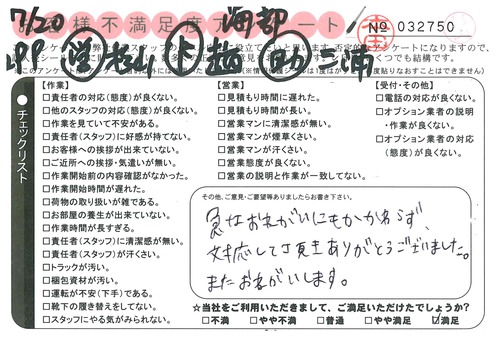 7/20
お客様不満足度アンケート
海部
No 032750
三浦
チェックリスト
【作業】
□責任者の対応(態度)が良くない。
□他のスタッフの対応(態度)が良くない。
□作業を見ていて不安がある。
□責任者(スタッフ)に好感が持てない。
□お客様への挨拶が出来ていない。
□ご近所への挨拶・気遣いが無い。
□作業開始前の内容確認がなかった。
□作業開始時間が遅れた。
□荷物の取り扱いが雑である。
□お部屋の養生が出来ていない。
□作業時間が長すぎる。
□責任者(スタッフ)に清潔感が無い。
□責任者(スタッフ)が汗くさい。
□トラックが汚い。
□梱包資材が汚い。
□運転が不安(下手)である。
□靴下の履き替えをしてない。
□スタッフにやる気がみられない。
【営業】
□見積もり時間に遅れた。
□見積もり時間が長い。
□営業マンに清潔感が無い。
□営業マンが煙草くさい。
□営業マンが汗くさい。
□営業態度が良くない。
□営業の説明と作業が一致してない。
【受付・その他】
□電話の対応が良くない。
□オプション業者の説明
・作業が良くない。
□オプション業者の対応
(態度)が良くない。
その他、ご意見・ご要望等ありましたらお書き下さい。
急なおねがいにもかかわらず、
対応して頂きありがとうございました。
またおねがいします。
☆当社をご利用いただきまして、ご満足いただけたでしょうか?
□不満 □やや不満 □普通 □やや満足 ☑満足